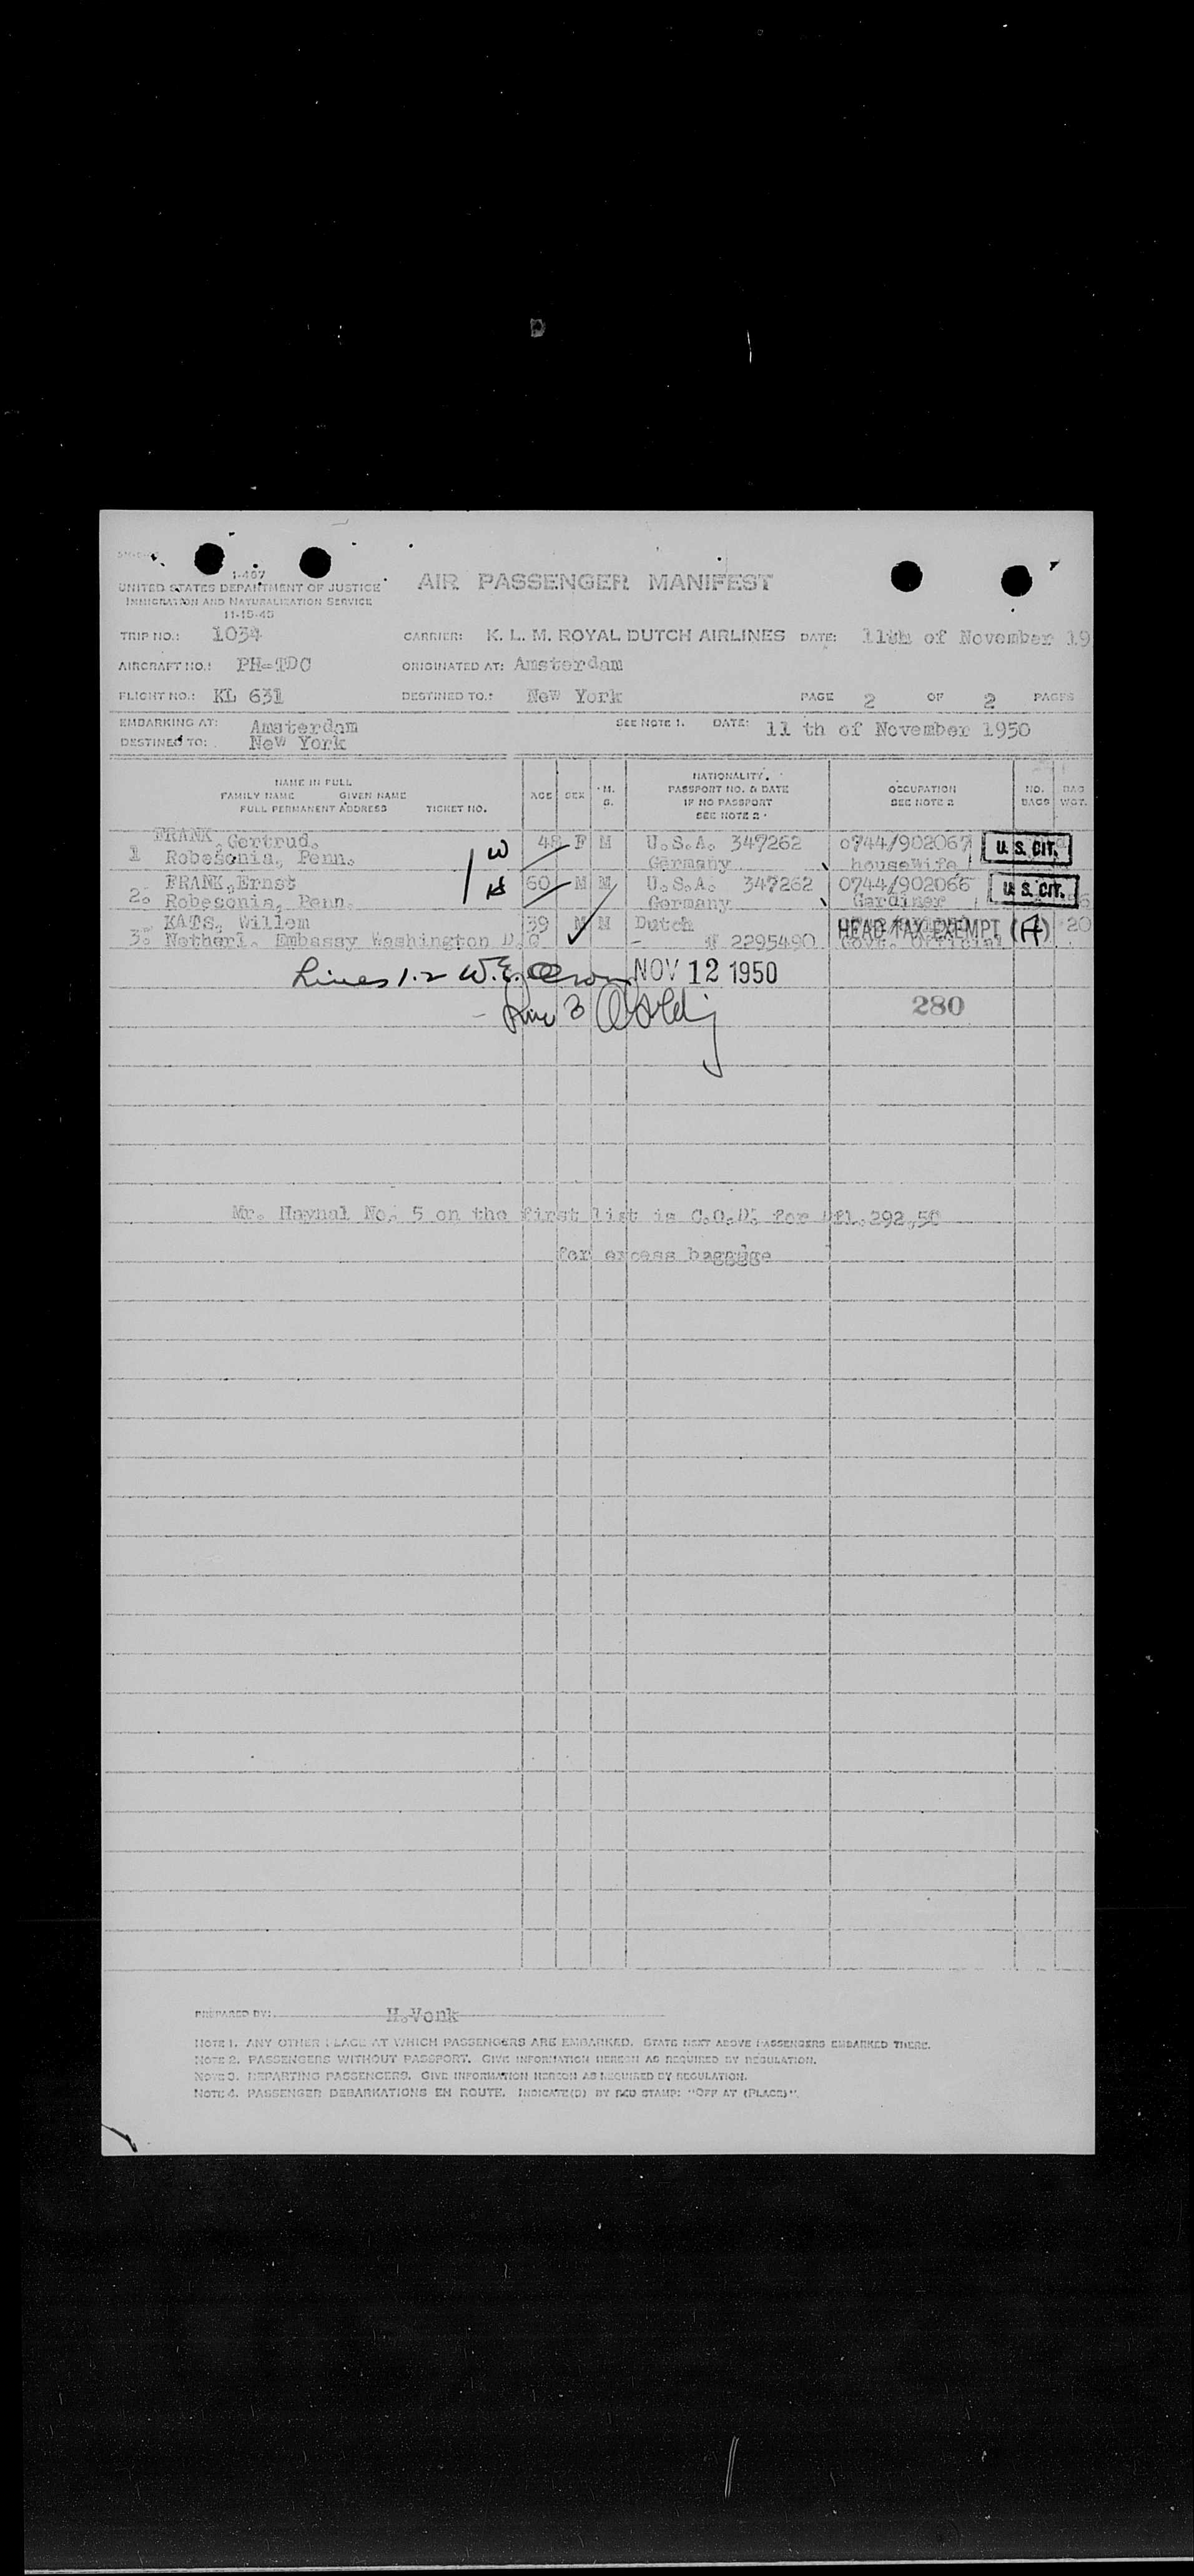 I-467
UNITED STATES DEPARTMENT OF JUSTICE
IMMIGRATION AND NATURALIZATION SERVICE
11-15-45
AIR PASSENGER MANIFEST
TRIP NO.: 1034 CARRIER: K. L. M. ROYAL DUTCH AIRLINES DATE: 11th of November 19
AIRCRAFT NO.: PH=TDC ORIGINATED AT: Amsterdam
FLIGHT NO.: KL 631 DESTINED TO.: New York PAGE 2 OF 2 PAGES
EMBARKING AT: Amsterdam SEE NOTE 1. DATE: 11 th of November 1950
DESTINED TO: New York
NAME IN FULL
FAMILY NAME GIVEN NAME
FULL PERMANENT ADDRESS TICKET NO.
AGE SEX M. S.
NATIONALITY.
PASSPORT NO. & DATE
IF NO PASSPORT
SEE NOTE 2
OCCUPATION
SEE NOTE 2
NO. BAGS
BAG WGT.
FRANK, Gertrud. W 48 F M U.S.A. 347262 0744/902067 U. S. CIT.
1 Robesonia, Penn. Germany housewife
FRANK, Ernst H 60 M M U.S.A. 347262 0744/902066 U. S. CIT.
2. Robesonia, Penn. Germany Gardiner
KATS, Willem 39 M M Dutch HEAD TAX EXEMPT (A) 20
3. Netherl. Embassy Washington D.C. - # 2295490 Govt. Official
Lines 1-2 W.E. NOV 12 1950
- Line 3
280
Mr. Haynal No. 5 on the first list is C.O.D. for Hfl.292,50
for excess baggage
PREPARED BY: H.Vonk
NOTE 1. ANY OTHER PLACE AT WHICH PASSENGERS ARE EMBARKED. STATE NEXT ABOVE PASSENGERS EMBARKED THERE.
NOTE 2. PASSENGERS WITHOUT PASSPORT. GIVE INFORMATION HEREON AS REQUIRED BY REGULATION.
NOTE 3. DEPARTING PASSENGERS. GIVE INFORMATION HEREON AS REQUIRED BY REGULATION.
NOTE 4. PASSENGER DEBARKATIONS EN ROUTE. INDICATE(D) BY RED STAMP: "OFF AT (PLACE)".